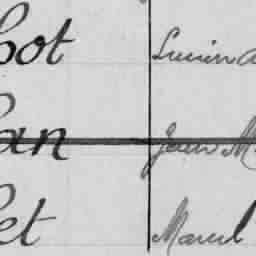 bot Lucien
an Jean M
et Marcel